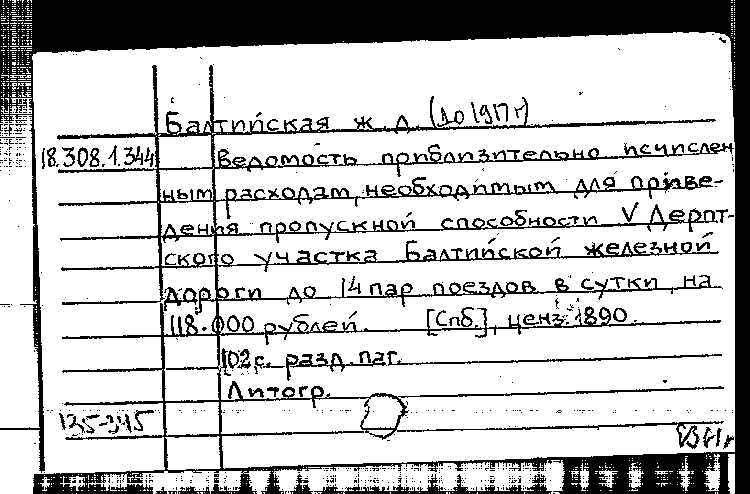 Балтийская ж. д. (до 1917 г)
18.308.1.344 Ведомость приблизительно исчислен
ным расходам, необходимым для приве-
дения пропускной способности V Дерпт-
ского участка Балтийской железной
дороги до 14 пар поездов в сутки, на
118.000 рублей. [Спб.], ценз. 1890.
102 с. разд. паг.
Литогр.
135-345